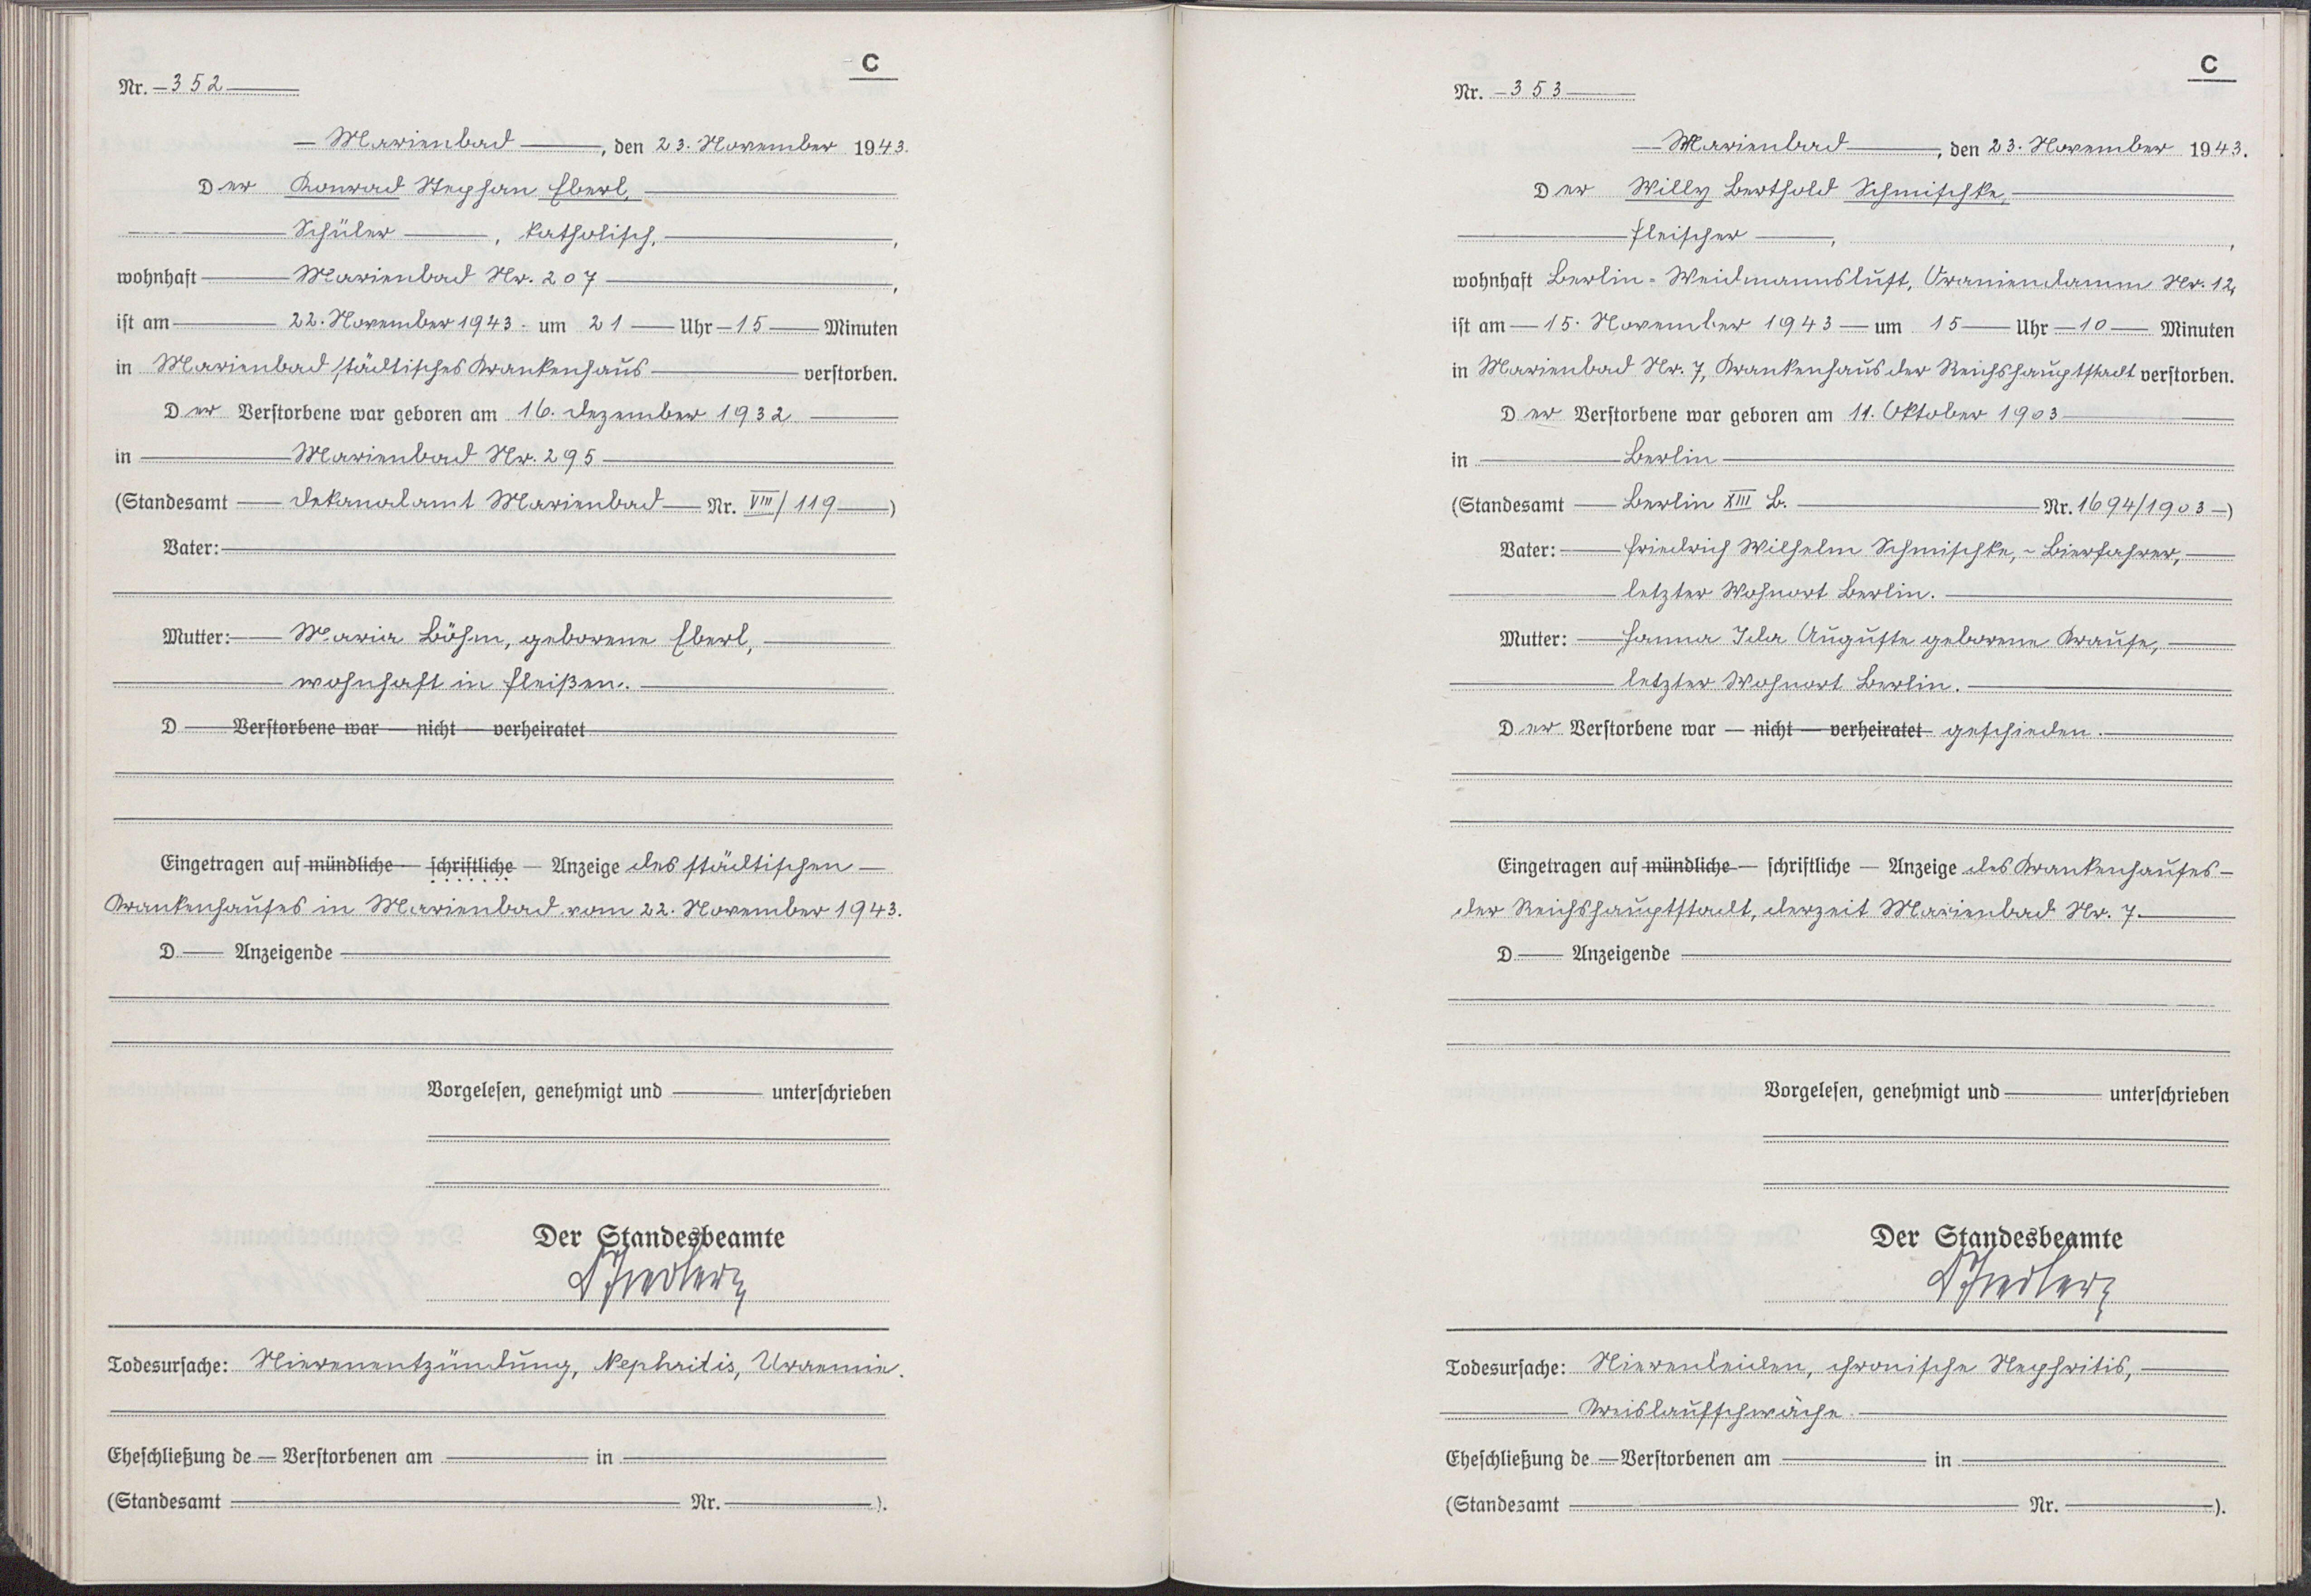 C
Nr. 352
Marienbad, den 23. November 1943.
Der Konrad Stephan Eberl,
Schüler, katholisch,
wohnhaft Marienbad Nr. 207,
ist am 22. November 1943 um 21 Uhr 15 Minuten
in Marienbad städtisches Krankenhaus verstorben.
Der Verstorbene war geboren am 16. Dezember 1932
in Marienbad Nr. 295
(Standesamt Dekanalamt Marienbad Nr. VIII/119)
Vater:
Mutter: Maria Böhm, geborene Eberl,
wohnhaft in Fleißen.
D Verstorbene war — nicht — verheiratet
Eingetragen auf mündliche — schriftliche — Anzeige des städtischen
Krankenhauses in Marienbad vom 22. November 1943.
D Anzeigende
Vorgelesen, genehmigt und unterschrieben
Der Standesbeamte
Todesursache: Nierenentzündung, Nephritis, Uraemie.
Eheschließung de Verstorbenen am in
(Standesamt Nr. ).
C
Nr. 353
Marienbad, den 23. November 1943.
Der Willy Berthold Schmischke,
Fleischer,
wohnhaft Berlin-Weidmannslust, Oraniendamm Nr. 12,
ist am 15. November 1943 um 15 Uhr 10 Minuten
in Marienbad Nr. 7, Krankenhaus der Reichshauptstadt verstorben.
Der Verstorbene war geboren am 11. Oktober 1903
in Berlin
(Standesamt Berlin XIII B. Nr. 1694/1903)
Vater: Friedrich Wilhelm Schmischke, Bierfahrer,
letzter Wohnort Berlin.
Mutter: Hanna Ida Auguste geborene Krause,
letzter Wohnort Berlin.
Der Verstorbene war — nicht — verheiratet geschieden.
Eingetragen auf mündliche — schriftliche — Anzeige des Krankenhauses
der Reichshauptstadt, derzeit Marienbad Nr. 7.
D Anzeigende
Vorgelesen, genehmigt und unterschrieben
Der Standesbeamte
Todesursache: Nierenleiden, chronische Nephritis,
Kreislaufschwäche.
Eheschließung de Verstorbenen am in
(Standesamt Nr. ).